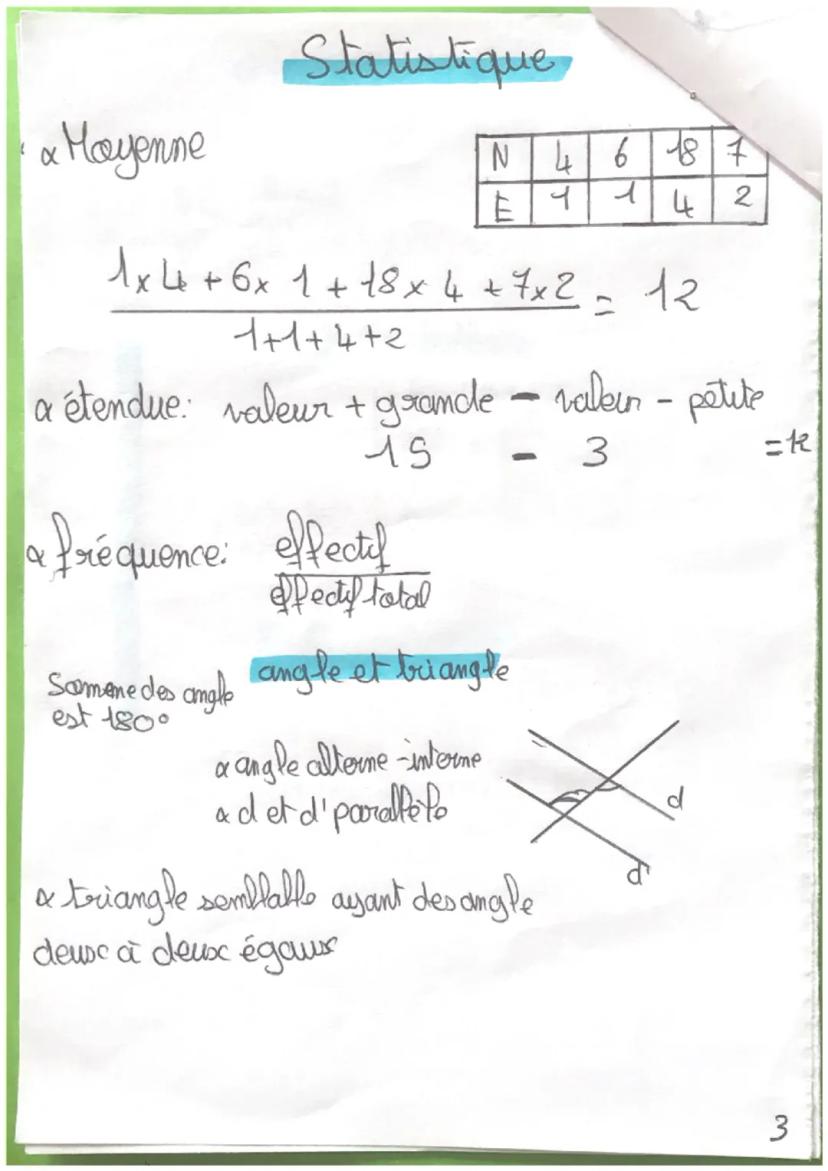 Statistique
α Moyenne
N 4 6 18 7
E 1 1 4 2
1x4 + 6x 1 + 18 x 4 + 7x2 = 12
1+1+4+2
α étendue: valeur + grande - valeur - petite
15 - 3 = 12
α fréquence: effectif
effectif total
angle et triangle
Somme des angle
est 180°
α angle alterne-interne
α d et d' parallèle
d
d'
α triangle semblable ayant des angle
deux à deux égaux
3